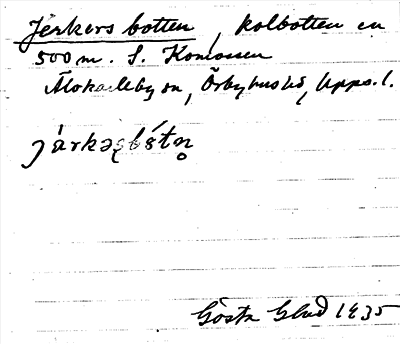 Jerkers botten, kolbotten en
500 m. S. Komossen
Älvkarleby sn, Örbyhus hd, Upps. l.
járkəʂbɔ́tn̥
Gösta Glad 1935